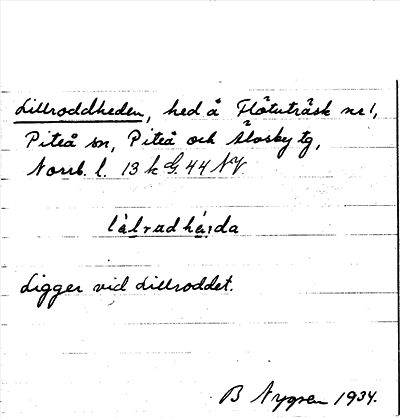 Lillroddheden, hed å Flötuträsk nr 1,
Piteå sn, Piteå och Älvsby tg,
Norrb. l. 13 k G. 44 NY
lálradhá;da
Ligger vid Lillroddet.
B Nygren 1934.